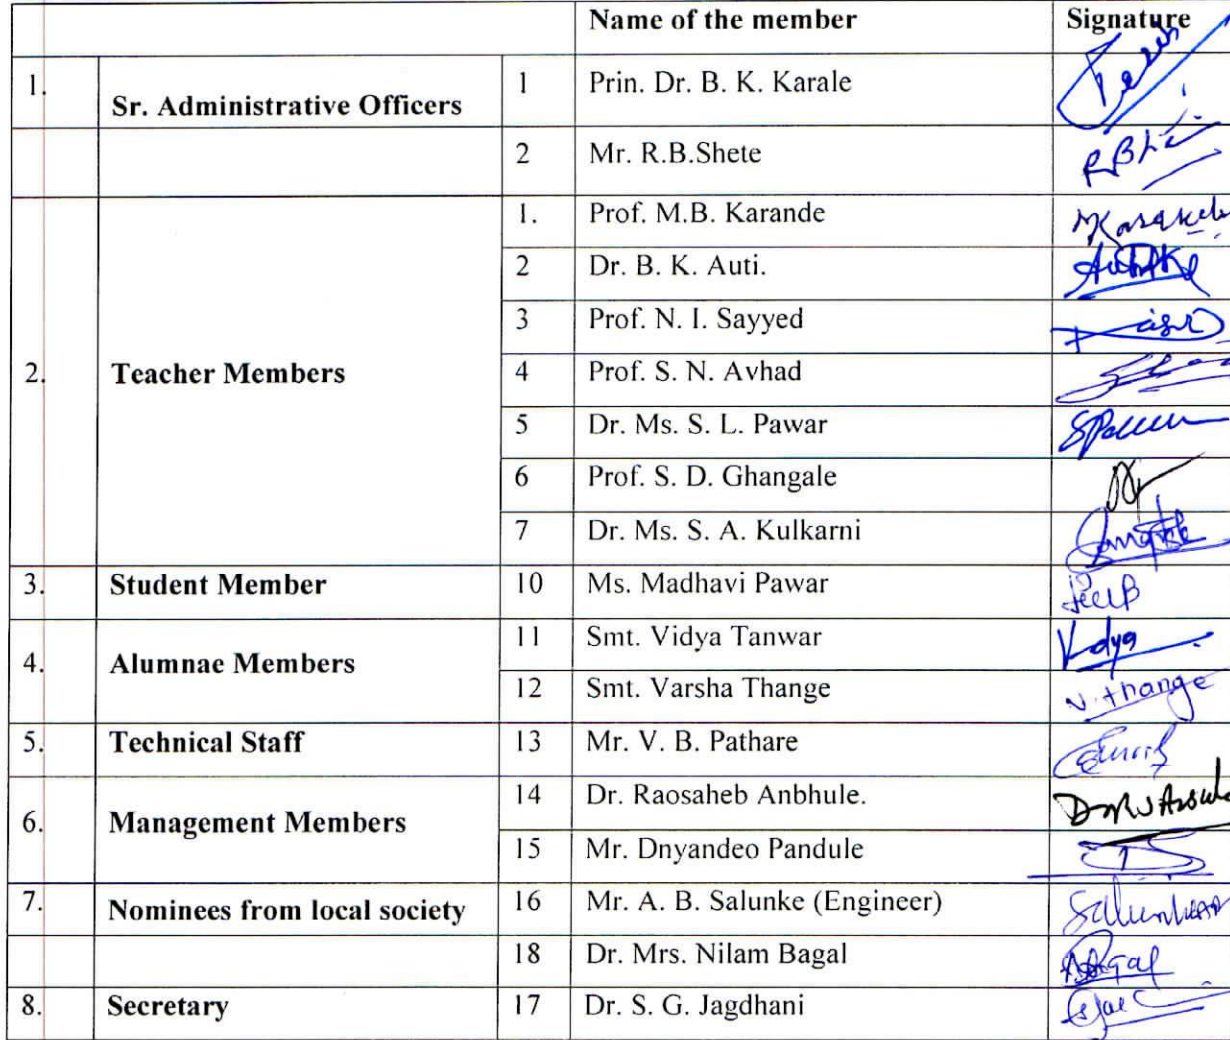 Name of the member Signature
1. Sr. Administrative Officers 1 Prin. Dr. B. K. Karale
2 Mr. R.B.Shete
2. Teacher Members
1. Prof. M.B. Karande
2 Dr. B. K. Auti.
3 Prof. N. I. Sayyed
4 Prof. S. N. Avhad
5 Dr. Ms. S. L. Pawar
6 Prof. S. D. Ghangale
7 Dr. Ms. S. A. Kulkarni
3. Student Member 10 Ms. Madhavi Pawar
4. Alumnae Members
11 Smt. Vidya Tanwar Vidya
12 Smt. Varsha Thange V. thange
5. Technical Staff 13 Mr. V. B. Pathare
6. Management Members
14 Dr. Raosaheb Anbhule.
15 Mr. Dnyandeo Pandule
7. Nominees from local society 16 Mr. A. B. Salunke (Engineer)
18 Dr. Mrs. Nilam Bagal
8. Secretary 17 Dr. S. G. Jagdhani